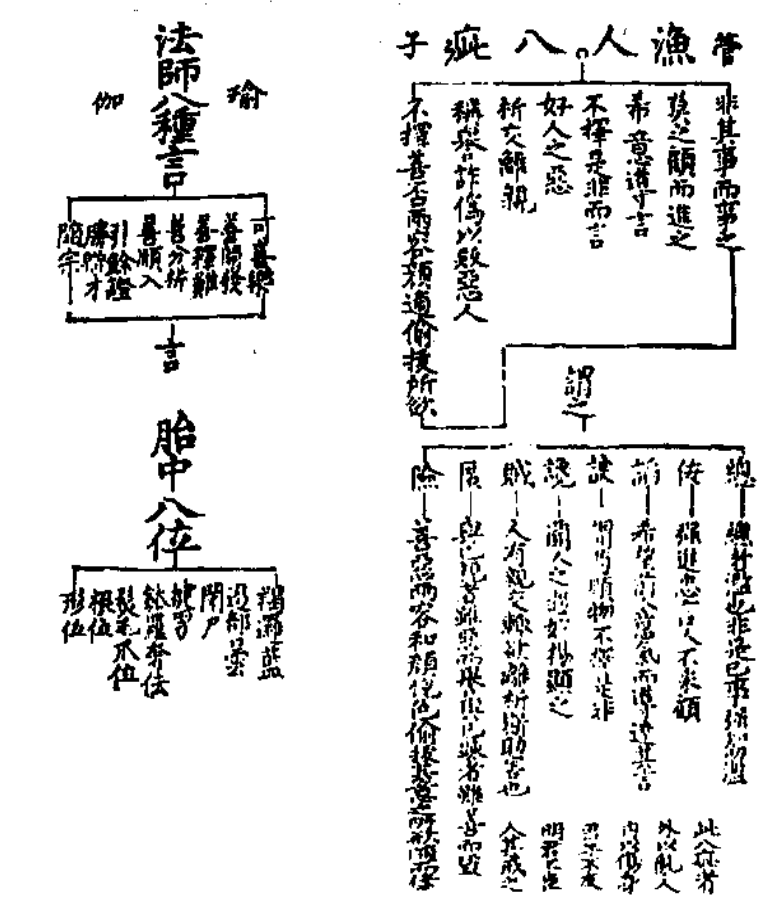 管漁人。八疵子
非其事而事之
莫之顧而進之
希意導言
不擇是非而言
好人之惡
析交離親
稱譽詐偽以敗惡人
不擇善否兩容頰適偷拔所欲
謂之
總 總計濫也非是己事強知叨濫
佞 強進忠言人不采顧
諂 希望前人意氣而導達其言
諛 苟且順物不擇是非
讒 聞人之過好揚顯之
賊 人有親交輒欲離析斯助害也
慝 與己親者雖惡而譽與己疎者雖善而毀
險 善惡兩容和顏悅色偷拔其意之所欲隨而
此八疵者
外以亂人
內以傷身
君子不友
明君不臣
人其戒之
瑜伽
法師八種言
可喜樂
善開發
善釋難
善分析
善順入
引餘證
勝辯才
隨宗
言
胎中八位
羯邏藍
遏部曇
閉尸
健男
鉢羅奢佉
髮毛爪位
根位
形位